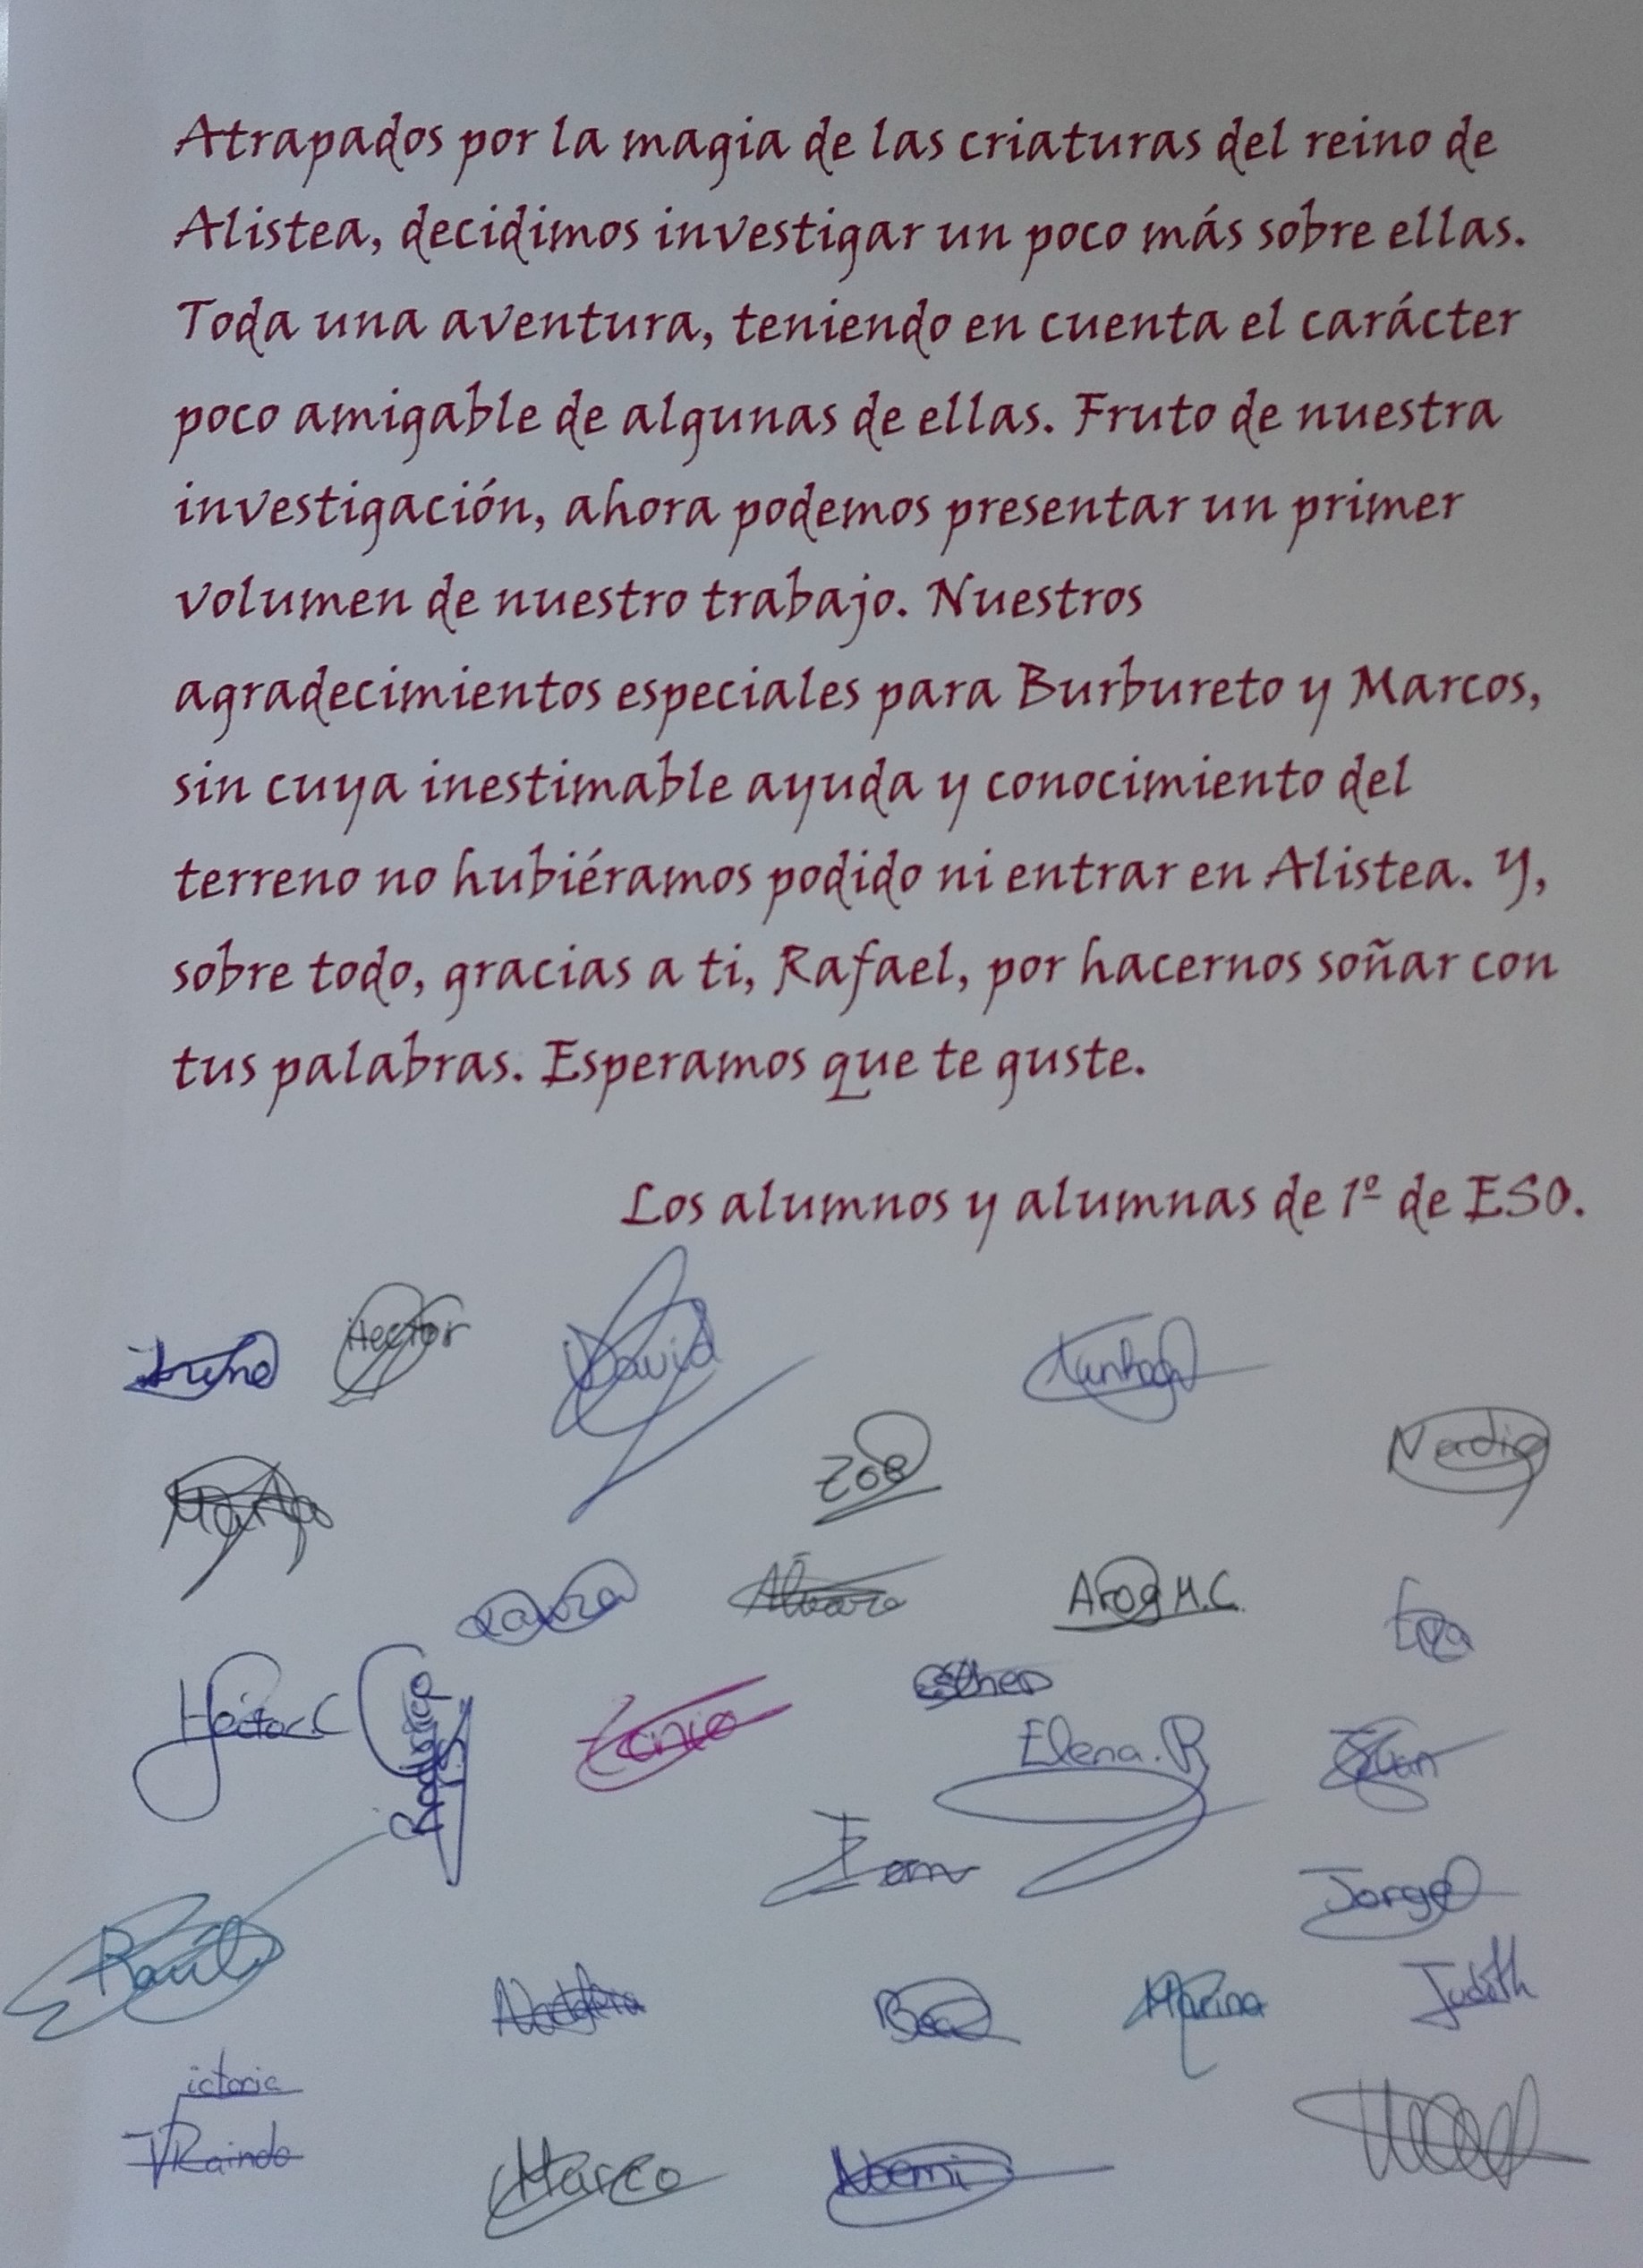 Atrapados por la magia de las criaturas del reino de
Alistea, decidimos investigar un poco más sobre ellas.
Toda una aventura, teniendo en cuenta el carácter
poco amigable de algunas de ellas. Fruto de nuestra
investigación, ahora podemos presentar un primer
volumen de nuestro trabajo. Nuestros
agradecimientos especiales para Burbureto y Marcos,
sin cuya inestimable ayuda y conocimiento del
terreno no hubiéramos podido ni entrar en Alistea. Y,
sobre todo, gracias a ti, Rafael, por hacernos soñar con
tus palabras. Esperamos que te guste.
Los alumnos y alumnas de 1º de ESO.
Irene
Hector
David
Zoe
Nadia
Marta
Laura
Álvaro
M.C.
Eva
Héctor.C
Rodrigo
Esther
Elena.R
Jorge
Raúl
Bea
Marina
Judith
Victoria
Marco
Noemi